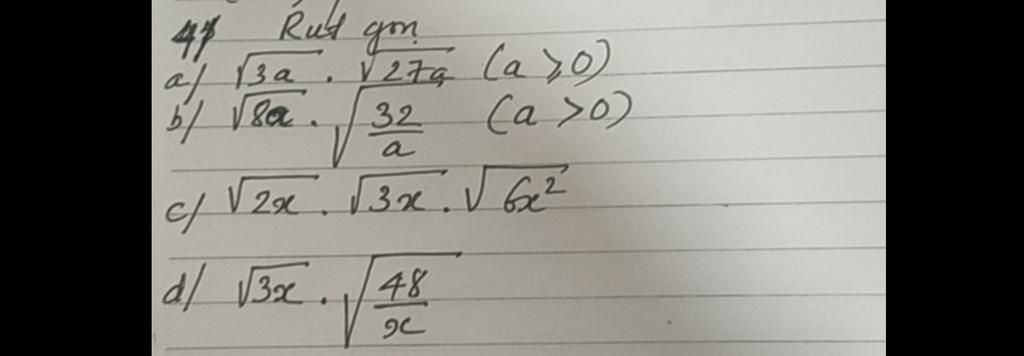 4/ Rút gọn
a/ √3a . √27a (a ⩾ 0)
b/ √8a . √(32/a) (a > 0)
c/ √2x . √3x . √6x²
d/ √3x . √(48/x)